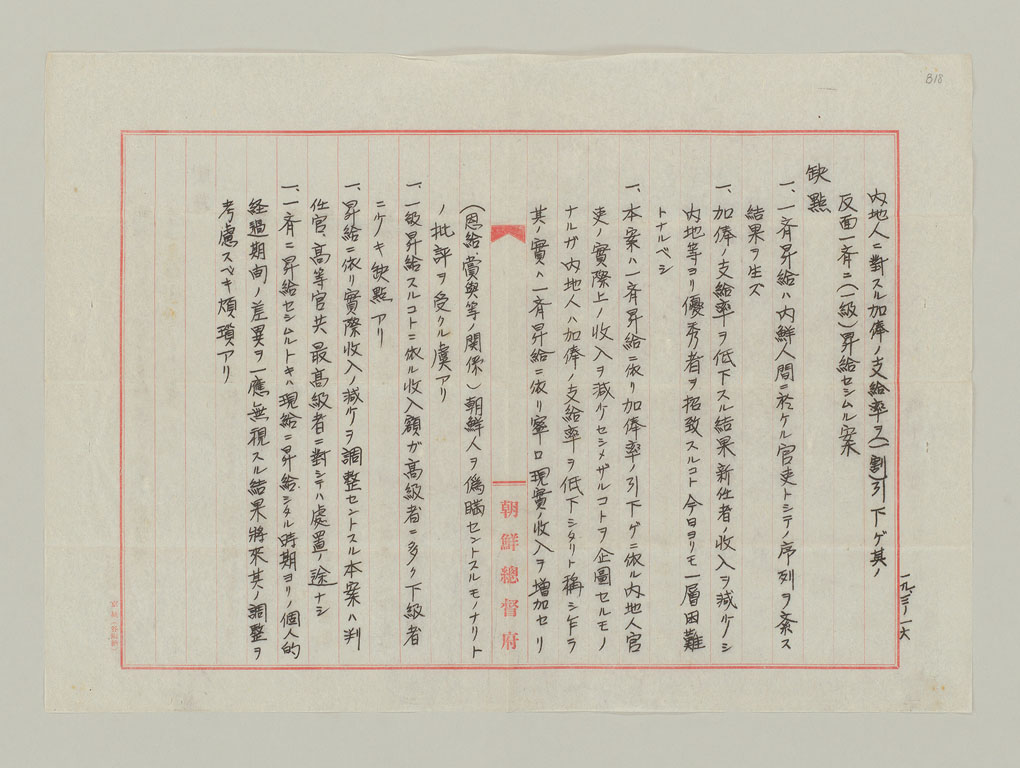 818
一九、三、一六
内地人ニ對スル加俸ノ支給率ヲ(一割)引下ゲ其ノ
反面一斉ニ(一級)昇給セシムル案
缺點
一、一斉昇給ハ内鮮人間ニ於ケル官吏トシテノ序列ヲ紊ス
結果ヲ生ズ
一、加俸ノ支給率ヲ低下スル結果新任者ノ收入ヲ減ケノシ
内地等ヨリ優秀者ヲ招致スルコト今日ヨリモ一層困難
トナルベシ
一、本案ハ一斉昇給ニ依リ加俸率ノ引下ゲニ依ル内地人官
吏ノ實際上ノ收入ヲ減ケセシメザルコトヲ企圖セルモノ
ナルガ内地人ハ加俸ノ支給率ヲ低下シタリト稱シ乍ラ
其ノ實ハ一斉昇給ニ依リ寧ロ現實ノ收入ヲ増加セリ
朝鮮總督府
(恩給、賞與等ノ関係)朝鮮人ヲ偽瞞セントスルモノナリト
ノ批評ヲ受クル虞アリ
一、一級昇給スルコトニ依ル收入額ガ高級者ニ多ク下級者
ニケキ缺點アリ
一、昇給ニ依リ實際收入ノ減ケヲ調整セントスル本案ハ判
任官、高等官共最高級者ニ對シテハ處置ノ途ナシ
一、一斉ニ昇給セシムルトキハ現給ニ昇給シタル時期ヨリノ個人的
経過期间ノ差異ヲ一應無視スル結果將來其ノ調整ヲ
考慮スベキ煩瑣アリ